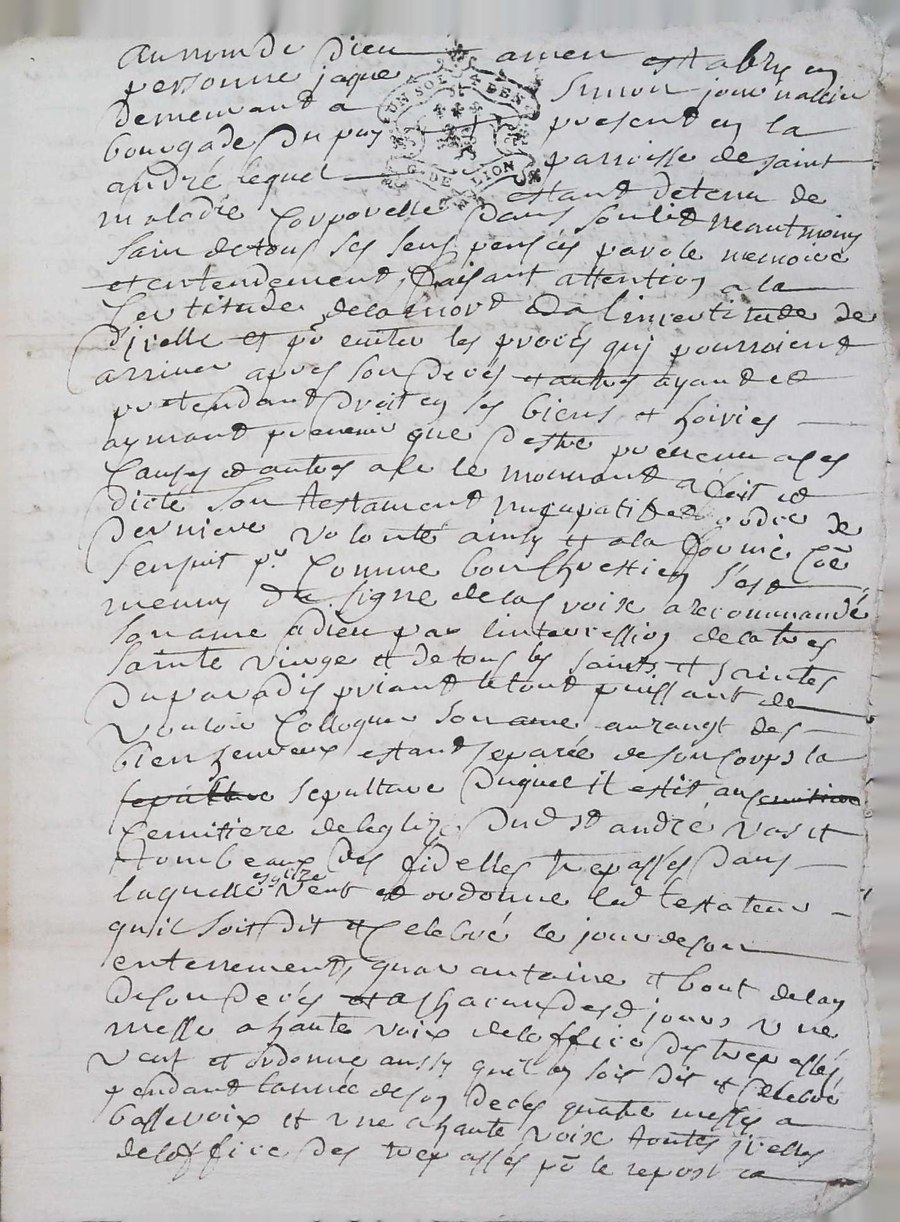 Au nom de Dieu amen establis en
personne jaque Simon journallier
demeurant a present en la
bourgade du puy parroisse de saint
UN SOL DEN. G. DE LION
andré lequel estant detenu de
maladie corporelle dans son lit neantmoins
sain de tous ses sens pensées parole memoire
et entendement faisant attention a la
certitude de la mort et a l'incertitude de
d'jcelle et po eviter les procés quj pourroient
arriver apres son decés et autres ayant et
pretendant droit en ses biens et hoiries
aymant que destre prevenu a ces
causes et autres a le mouvant a et
dicté son testament nuncupatif et ordre de
derniere volonté ainsy et a la forme
s'ensuit pr comme bon Chrestien s'est
muny du signe de la voix a recommandé
son ame a dieu par l'intercession de la tres
sainte vierge et de tous les saints et saintes
du paradis priant le tout puissant de
vouloir colloquer son ame au rangt des
bien heureux estant separée de son corps la
sepulture sepulture duquel il eslit au cemitiere
cemitiere de leglize dud st andré vas et
tombeaux des fidelles trepassés dans
laquelle eglize veut et ordonne led testateur
qu'il soit dit et celebré le jour de son
enterrement, quarantaine et bout de lan
de son decés et a chacun desd jours une
messe a haute voix de loffice des trepassés
veut et ordonne aussy quil en soit dit et celebré
pendant l'année de son decés quatre messes a
basse voix et une a haute voix toutes jcelles
de loffice des trepassés po le repost ca